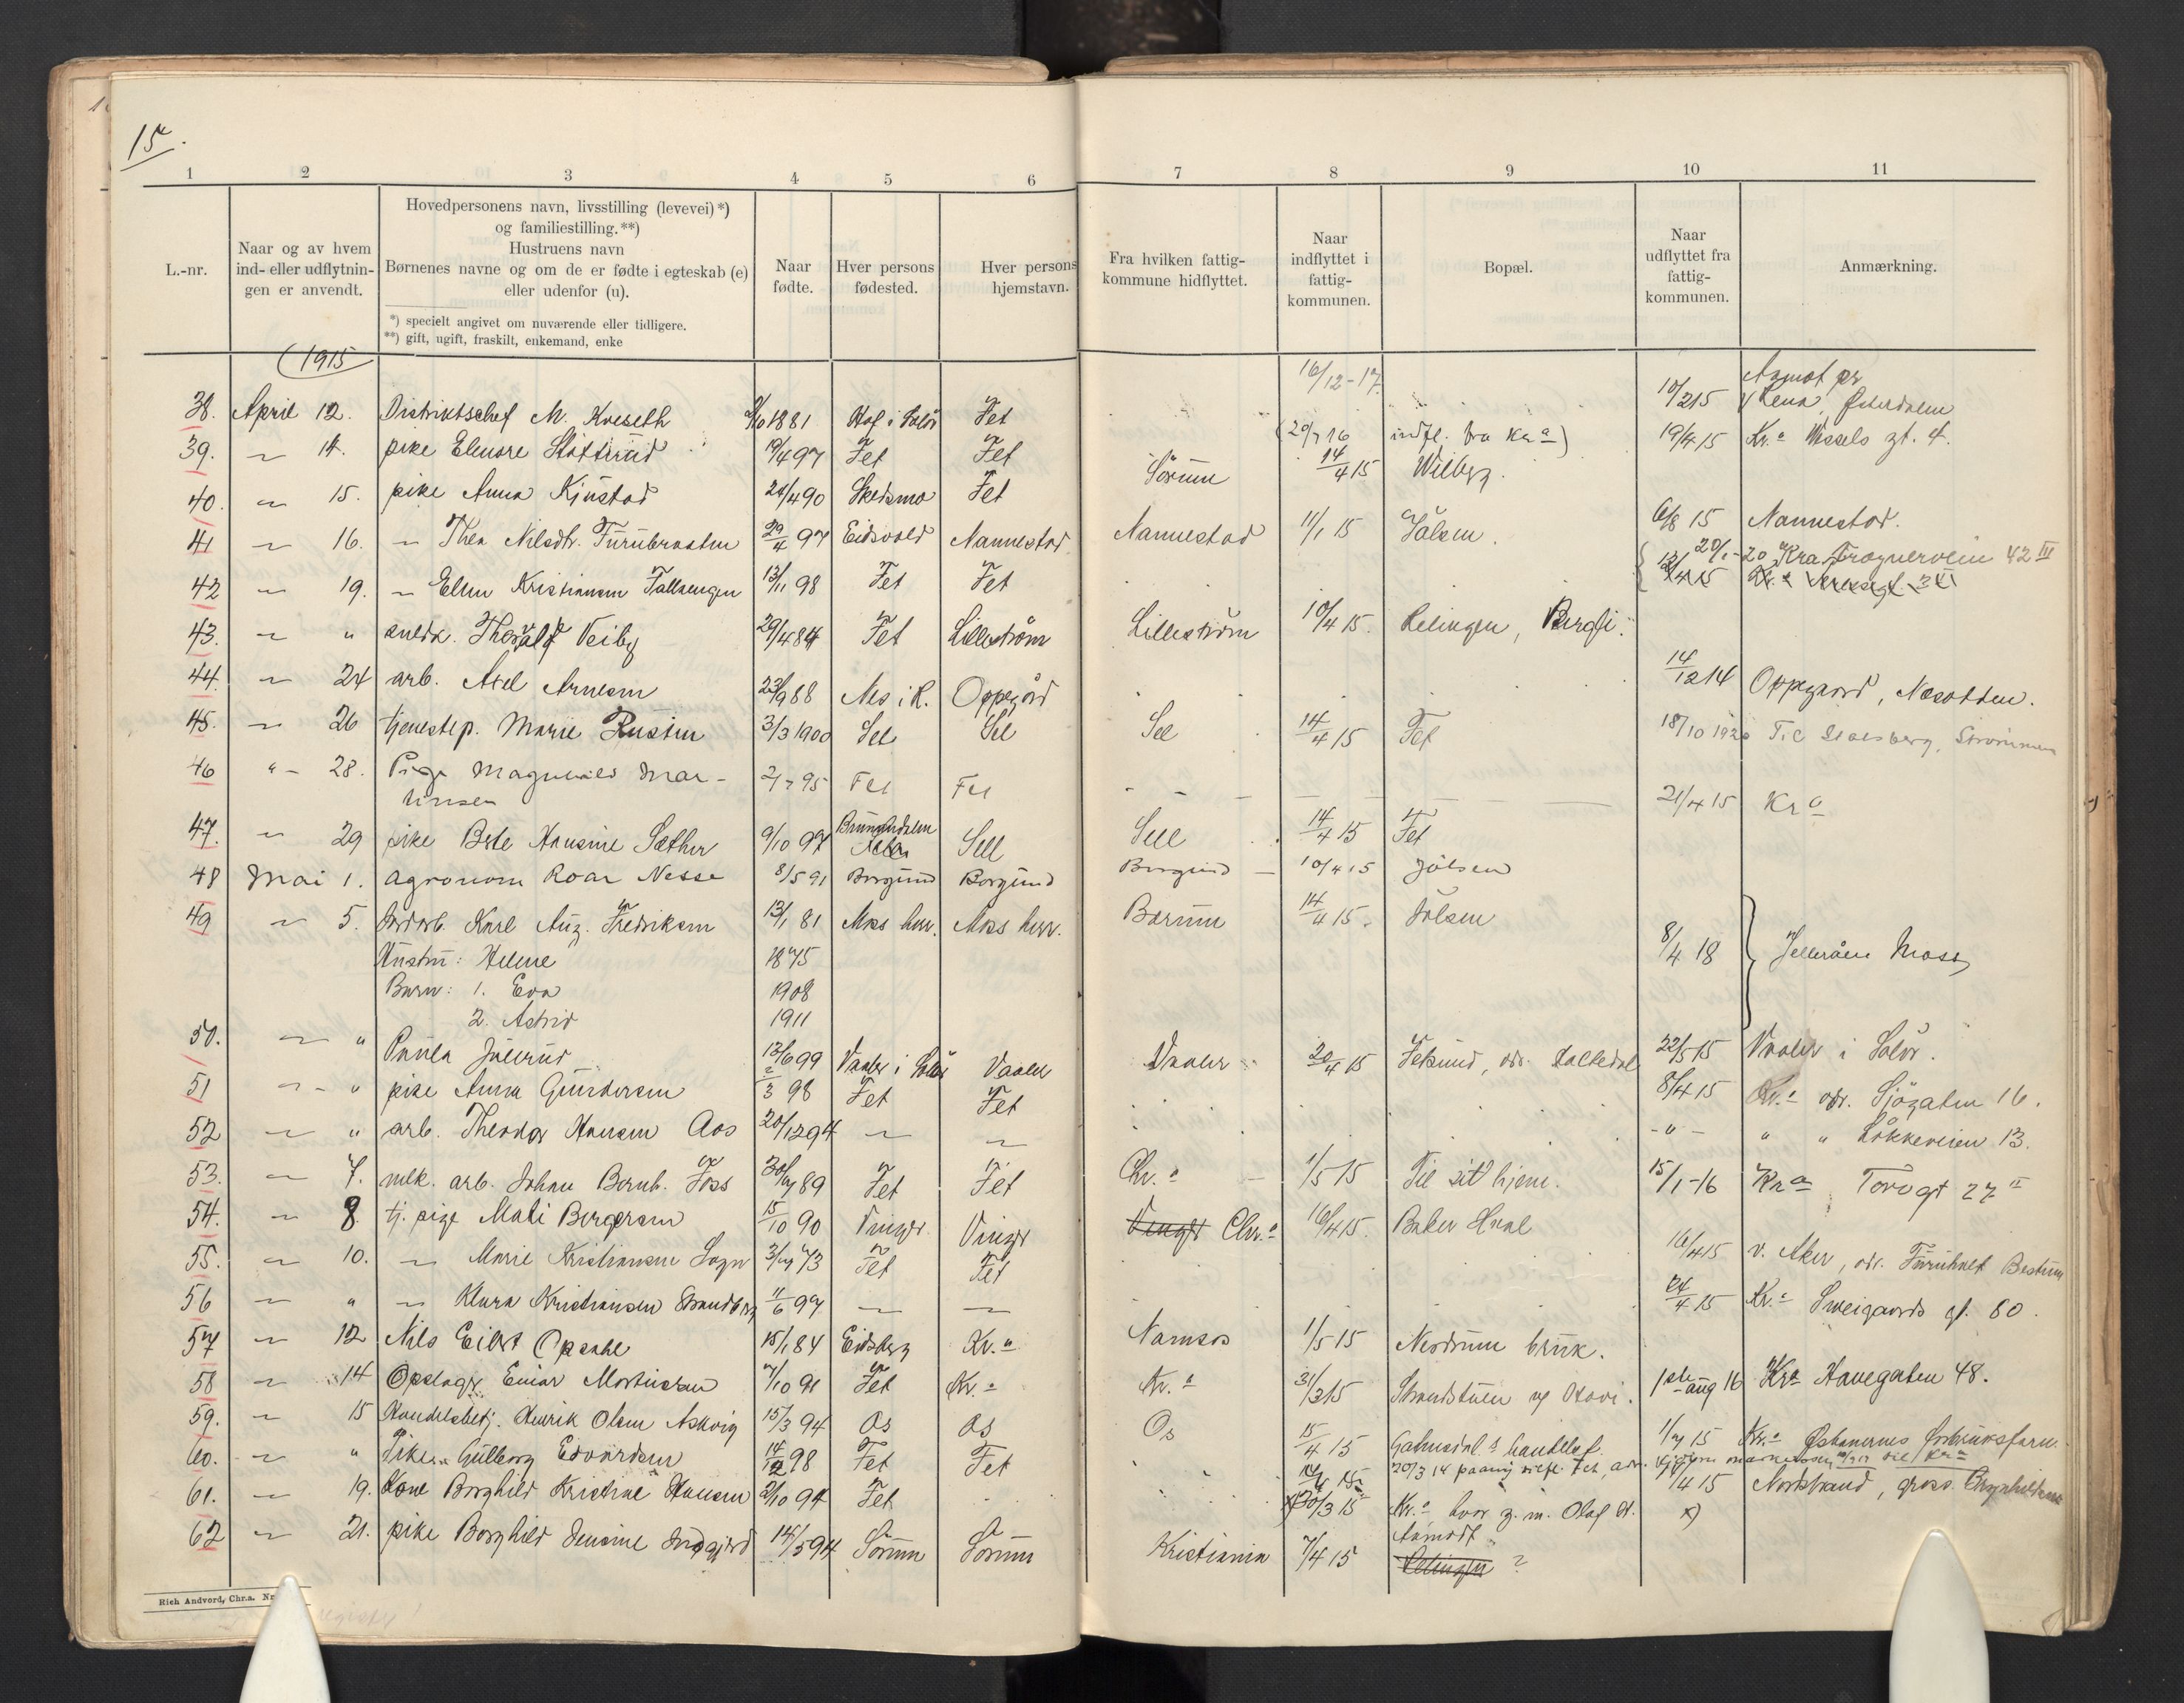 15.
1 2 3 4 5 6 7 8 9 10 11
L.-nr.
Naar og av hvem
ind- eller udflytnin-
gen er anvendt.
Hovedpersonens navn, livsstilling (levevei) *)
og familiestilling. **)
Hustruens navn
Børnenes navne og om de er fødte i egteskab (e)
eller udenfor (u).
*) specielt angivet om nuværende eller tidligere.
**) gift, ugift, fraskilt, enkemand, enke
Naar
fødte.
Hver persons
fødested.
Hver persons
hjemstavn.
Fra hvilken fattig-
kommune hidflyttet.
Naar
indflyttet i
fattig-
kommunen.
Bopæl.
Naar
udflyttet fra
fattig-
kommunen.
Anmærkning.
1915
16/12-17 Aamot pr
38. April 12. Distriktschef M. Kveseth 1881 Hof i Solør Fet 10/2 15 Rena, Østerdalen
39. " 14. pike Elenore Slåttrud 19/4 97 Fet Fet (20/7 16 indfl. fra Kr.a) 19/4 15 Kr.a Wessels gt. 4.
40. " 15. pike Anna Kjustad 24/4 90 Skedsmo Fet Sørum 14/4 15 Wilberg.
41 " 16. " Thea Nilsdtr. Furubraaten 29/4 97 Eidsvold Nannestad Nannestad 11/1 15 Jålsen. 6/8 15 Nannestad.
20/1-20 Kra, Frognerveien 42 III
42 " 19. " Ellen Kristiansen Fallaengen 13/11 98 Fet Fet
43. " " snedk. Thoralf Veiby 29/4 84 Fet Lillestrøm Lillestrøm 10/4 15. Relingen, Bergli.
44. " 24 arb. Axel Arnesen 23/9 88 Nes i R. Oppegård 14/12 14 Oppegaard, Nesodden.
45. " 26 tjenestep. Marie Rusten 3/3 1900 Sel Sel Sel 14/4 15 Fet 18/10 1920 Til Stalsberg, Strømmen
46 " 28. Pige Magnhild Mar-
tinsen 2/7 95 Fet Fet 21/4 15 Kra
47. " 29 pike Berte Hansine Sæther 9/10 97 Brumunddalen Sell Sell 14/4 15 Fet
48 Mai 1. Agronom Roar Nesse 8/5 91 Borgund Borgund Borgund 10/4 15 Jølsen
49 " 5. Jordarb. Karl Aug. Fredriksen 13/1 81 Moss herr. Moss herr. Bærum 14/4 15. Jølsen
Hustru: Helene 1875 8/4 18 Jelleråen Moss
Barn: 1. Eva 1908
2. Astrid 1911
50. " " Paula Jullrud 13/6 99 Vaaler i Solør Vaaler Vaaler 20/4 15 Fetsund, adr. Halledal 22/5 15 Vaaler i Solør.
51 " " pike Anna Gundersen 2/3 98 Fet Fet 8/4 15 Kr.a adr. Sjøgaten 16.
52 " " arb. Theodor Hansen Aos 20/12 94 " " -"- " " Løkkeveien 13.
53. " 7. mek. arb. Johan Bernh. Foss 30/7 89 Fet Fet Chr.a 1/5-15 Til sit hjem. 15/1-16 Kra Torvgt 27 II
54. " 8. tj. pige Mali Bergersen 15/10 90 Vinger Vinger Vinger Chr.a 16/4 15. Baker Hval
55. " 10. " Marie Kristiansen Sogn 3/7 73 Fet Fet 16/4 15 v. Aker, adr. Furuholt Bestum
56 " " " Klara Kristiansen Strandberg 11/6 97 " " 24/4 15 Kr.a Sweigaards gt. 80.
57 " 12 Nils Eilert Opsahl 15/1 84 Eidsberg Kr.a Namsos 1/5 15 Nerdrum bruk.
58 " 14 Opslager Einar Martinsen 7/10 91 Fet Kr.a Kr.a 31/3 15 Strandstuen ug Otovi. 1ste aug 16 Kra Havegaten 48.
59. " 15 Handelsbetj. Henrik Olsen Askvig 15/3 94 Os Os Os 15/4 15 Galmsdal.s handelsf. 1/7 15 Kr.a Østbanernes forbruksforn.
60. " " Pike Gullborg Edvardsen 14/12 98 Fet Fet
61. " 19. Kone Borghild Kristine Hansen 2/10 94 Fet 30/3 15 Kr.a hvor g. m. Olaf A. 1/4 15 Nordstrand,
Aamodt x)
62 " 21. pike Borghild Jensine 14/5 94 Sørum Sørum Kristiania 7/4 15 Relingen ?
Rich Andvord, Chr.a.